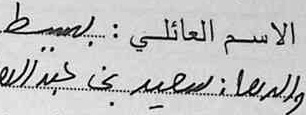 الاسم العائلي : بسيط
والدها : سعيد بن عبد الله